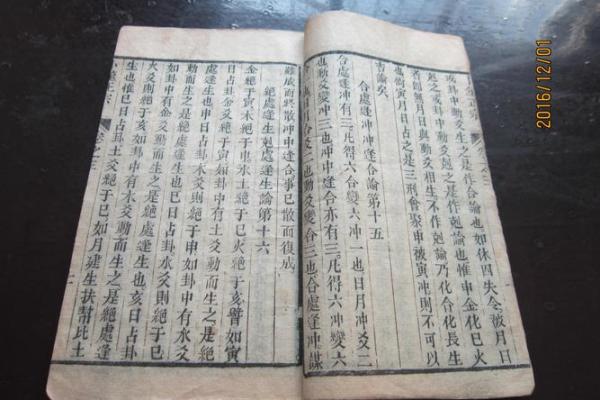 之是作合論也如休囚失令被月日
或卦中動爻剋之是作剋論也惟申金化巳火
剋之或卦中動爻剋之是作剋論乃化合化長生
者如與月日與動爻相生不作剋論
也寅月日占之是三刑會聚申被寅冲則不可以
吉論矣
合處逢冲冲處逢合論第十五
合處逢冲有三凡得六合變六冲一也日月冲爻二
也動爻變冲三也冲中逢合亦有三凡得六冲變六
合一也日月合爻二也動爻變合三也合處逢冲謀
雖成而終散冲中逢合事已散而復成
絕處逢生剋處逢生論第十六
金絕于寅木絕于申水土絕于巳火絕于亥譬如寅
日占卦金爻絕于寅如卦中有土爻動而生之是絕
處逢生也申日占卦木爻絕于申如卦中有水爻
動而生之是絕處逢生也巳日占卦水爻絕于巳
如卦中有金爻動而生之是絕處逢生也亥日占卦
火爻則絕于亥如卦中有木爻動而生之是絕處逢
生也惟巳日占卦土爻絕于巳如月建生扶幫比土
卷之三
2016/12/01